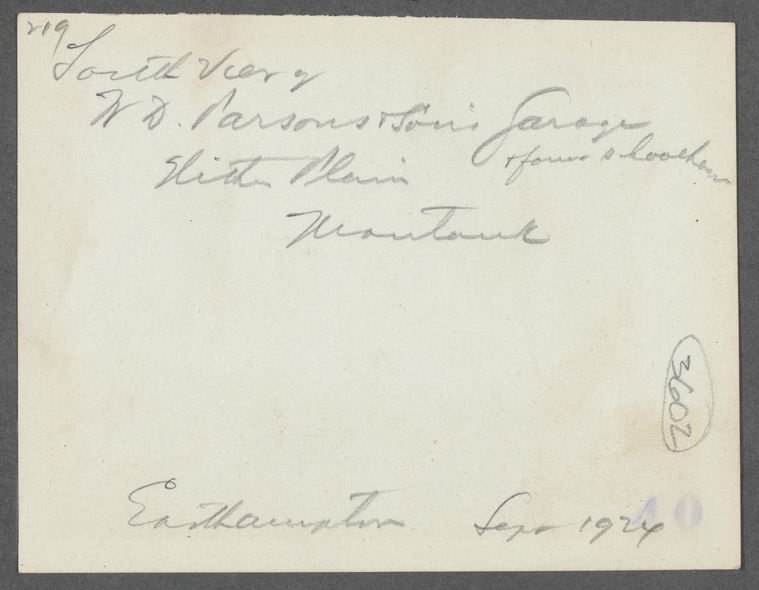 219
South View of
W D. Parsons & Sons Garage
& former schoolhouse
Hither Plain
Montauk
3602
Easthampton Sept 1924
40